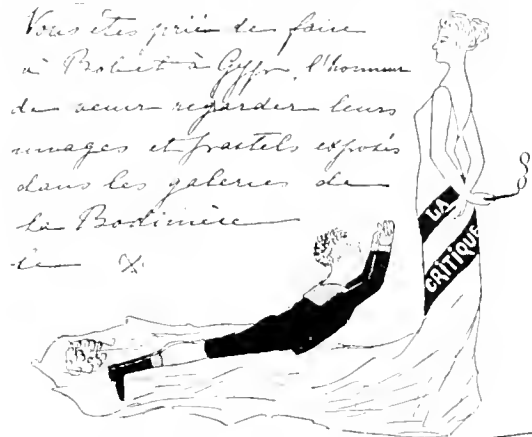 Vous êtes prié de faire
à Bob et à Gyp, l'honneur
de venir regarder leurs
images et pastels exposés
dans les galeries de
la Bodinière
le X.
LA
CRITIQUE